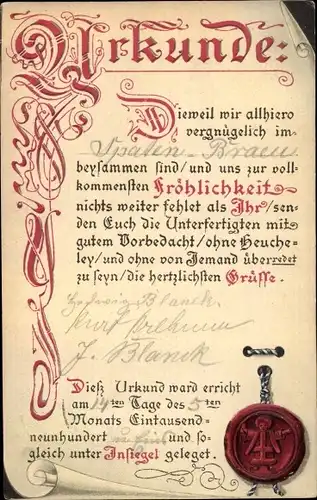 Urkunde:
Dieweil wir allhiero
vergnügelich im
Spaten-Braeu
beysammen sind/und uns zur voll-
kommensten Fröhlichkeit
nichts weiter fehlet als Ihr/sen-
den Euch die Unterfertigten mit
gutem Vorbedacht/ohne Heuche-
ley/und ohne von Jemand überredet
zu seyn/die hertzlichsten Grüsse.
Hedwig Blanck.
Kurt
J. Blanck
Dieß Urkund ward erricht
am 14ten Tage des 5ten
Monats Eintausend-
neunhundert und so-
gleich unter Insiegel geleget.